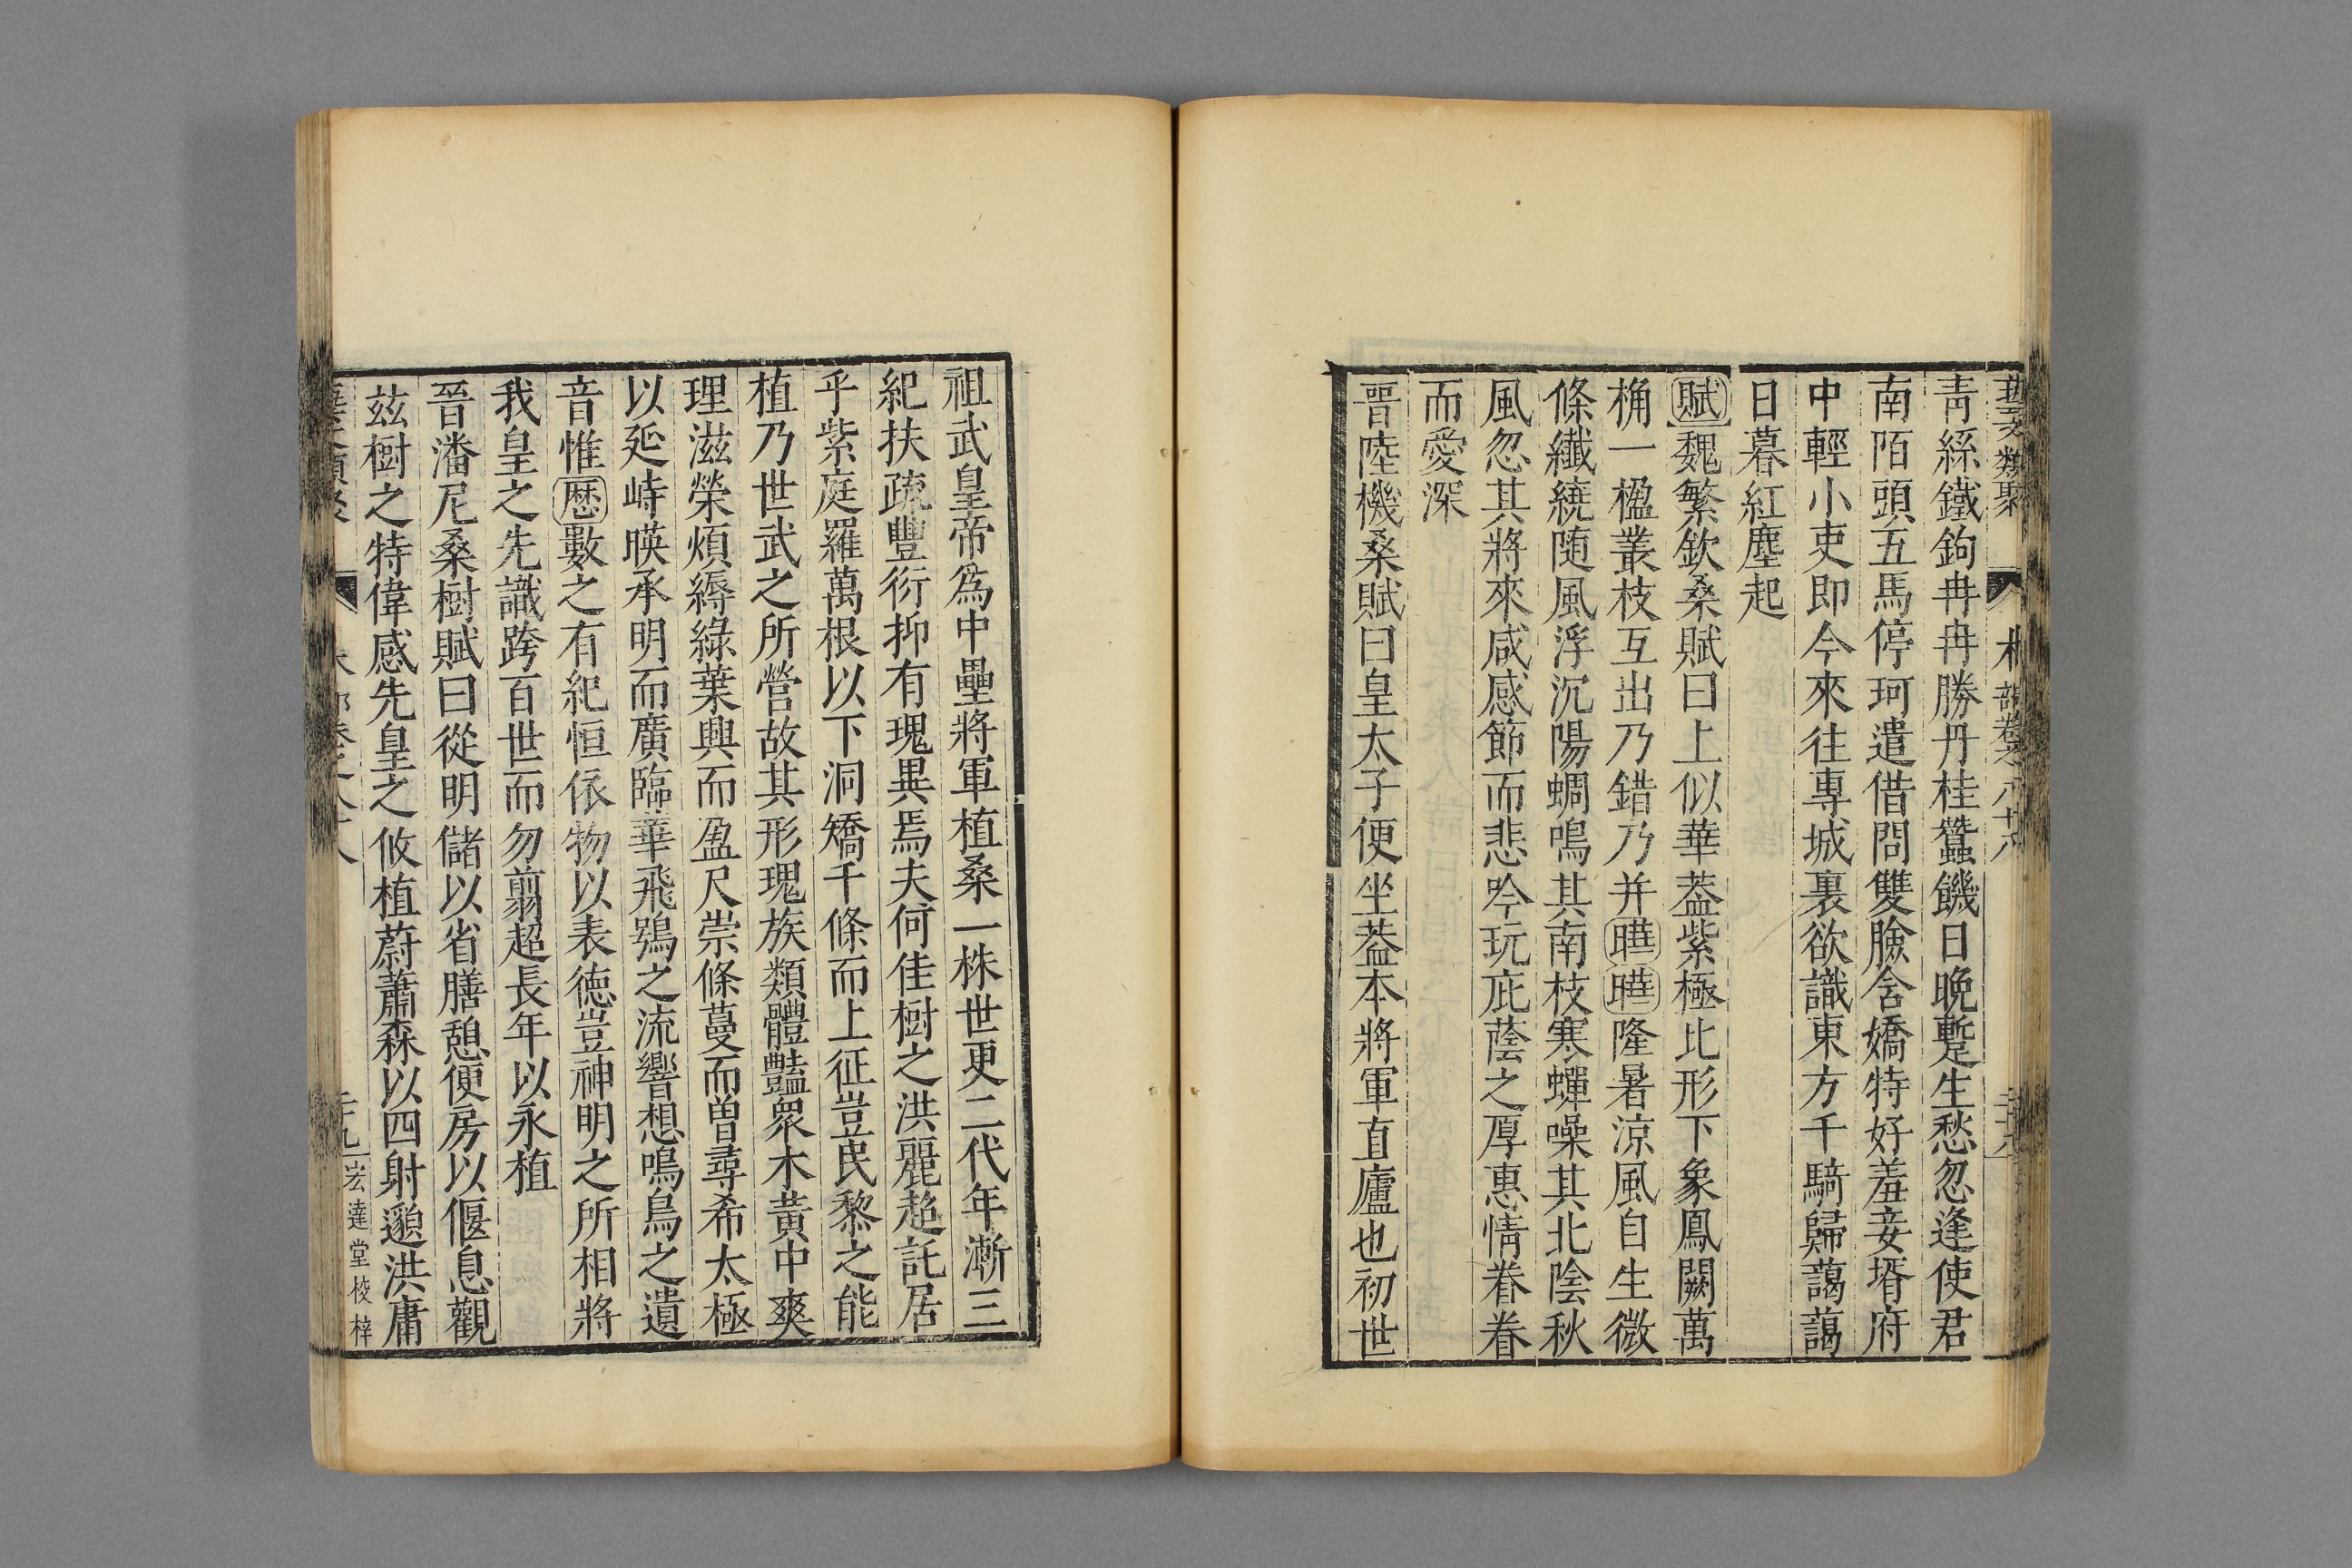 青絲鐵鉤冉冉勝丹桂蠶饑日晚蹔生愁忽逢使君
南陌頭五馬停珂遣借問雙臉含嬌特好羞妾壻府
中輕小吏即今來往專城裏欲識東方千騎歸藹藹
日暮紅塵起
賦魏繁欽桑賦曰上似華葢紫極比形下象鳳闕萬
桷一楹叢枝互出乃錯乃并曄曄隆暑涼風自生微
條纖繞随風浮沉陽蜩鳴其南枝寒蟬噪其北陰秋
風忽其將來咸感節而悲吟玩庇蔭之厚惠情眷眷
而愛深
晉陸機桑賦曰皇太子便坐葢本將軍直廬也初世
祖武皇帝爲中壘將軍植桑一株世更二代年漸三
紀扶疏豐衍抑有瑰異焉夫何佳樹之洪麗超託居
乎紫庭羅萬根以下洞矯千條而上征豈民黎之能
植乃世武之所營故其形瑰族類體豔衆木黃中爽
理滋榮煩縟綠葉興而盈尺崇條蔓而曽尋希太極
以延峙暎承明而廣臨華飛鴞之流響想鳴鳥之遺
音惟歷數之有紀恒依物以表德豈神明之所相將
我皇之先識跨百世而勿翦超長年以永植
晉潘尼桑樹賦曰從明儲以省膳憩便房以偃息觀
茲樹之特偉感先皇之攸植蔚蕭森以四射邈洪庸
宏達堂校梓